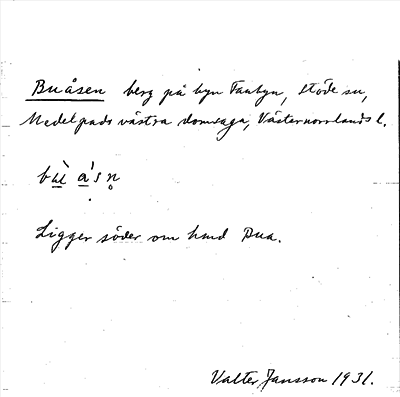 Buåsen berg på byn Fanbyn, Stöde sn,
Medelpads västra domsaga, Västernorrlands l.
bù̲ a̲̍sn̥
Ligger söder om
Valter Jansson 1931.